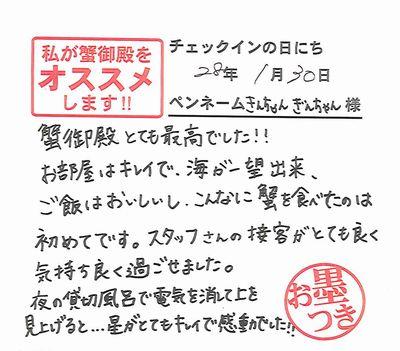 私が蟹御殿を
オススメ
します!!
チェックインの日にち
28年 1月30日
ペンネームきんちゃん ぎんちゃん 様
蟹御殿とても最高でした!!
お部屋はキレイで、海が一望出来、
ご飯はおいしいし、こんなに蟹を食べたのは
初めてです。スタッフさんの接客がとても良く
気持ち良く過ごせました。
夜の貸切風呂で電気を消して上を
見上げると…星がとてもキレイで感動でした!!
お墨つき